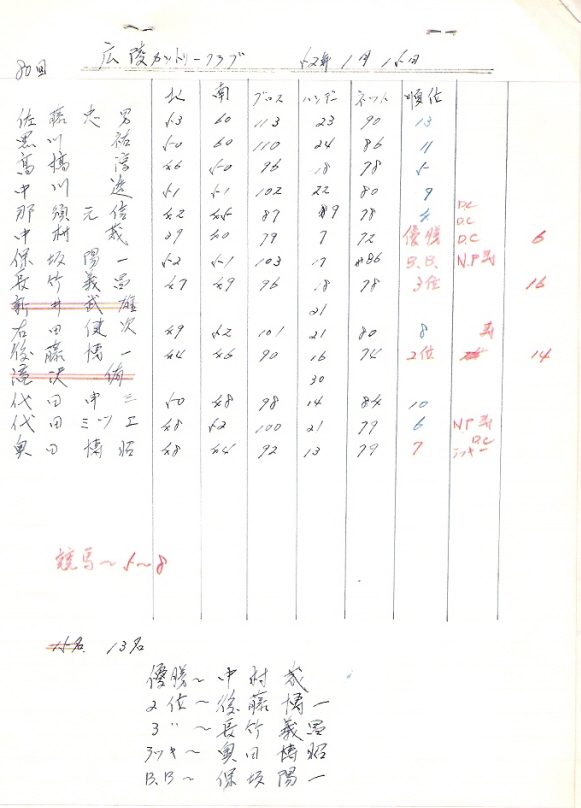 80回 広陵カントリークラブ 62年1月15日
北 南 グロス ハンデー ネット 順位
佐藤忠男 53 60 113 23 90 13
黒川 祐 50 60 110 24 86 11
高橋 淳 46 50 96 18 78 5
中川 透 51 51 102 22 80 9 D.C
那須元信 42 45 87 9 78 4 D.C
中村 哉 39 40 79 7 72 優勝 D.C 6
保坂陽一 52 51 103 17 86 B.B. N.P
長竹義男 47 49 96 18 78 3位 16
新井武雄 21
右田健次 49 52 101 21 80 8
後藤博一 44 46 90 16 74 2位 14
30
代田申三 50 48 98 14 84 10
代田ミツエ 48 52 100 21 79 6 N.P
奥田博昭 48 44 92 13 79 7 D.C ラッキー
競馬~5~8
15名 13名
優勝~中村 哉
2位~後藤博一
3〃~長竹義男
ラッキ~奥田博昭
B.B~保坂陽一